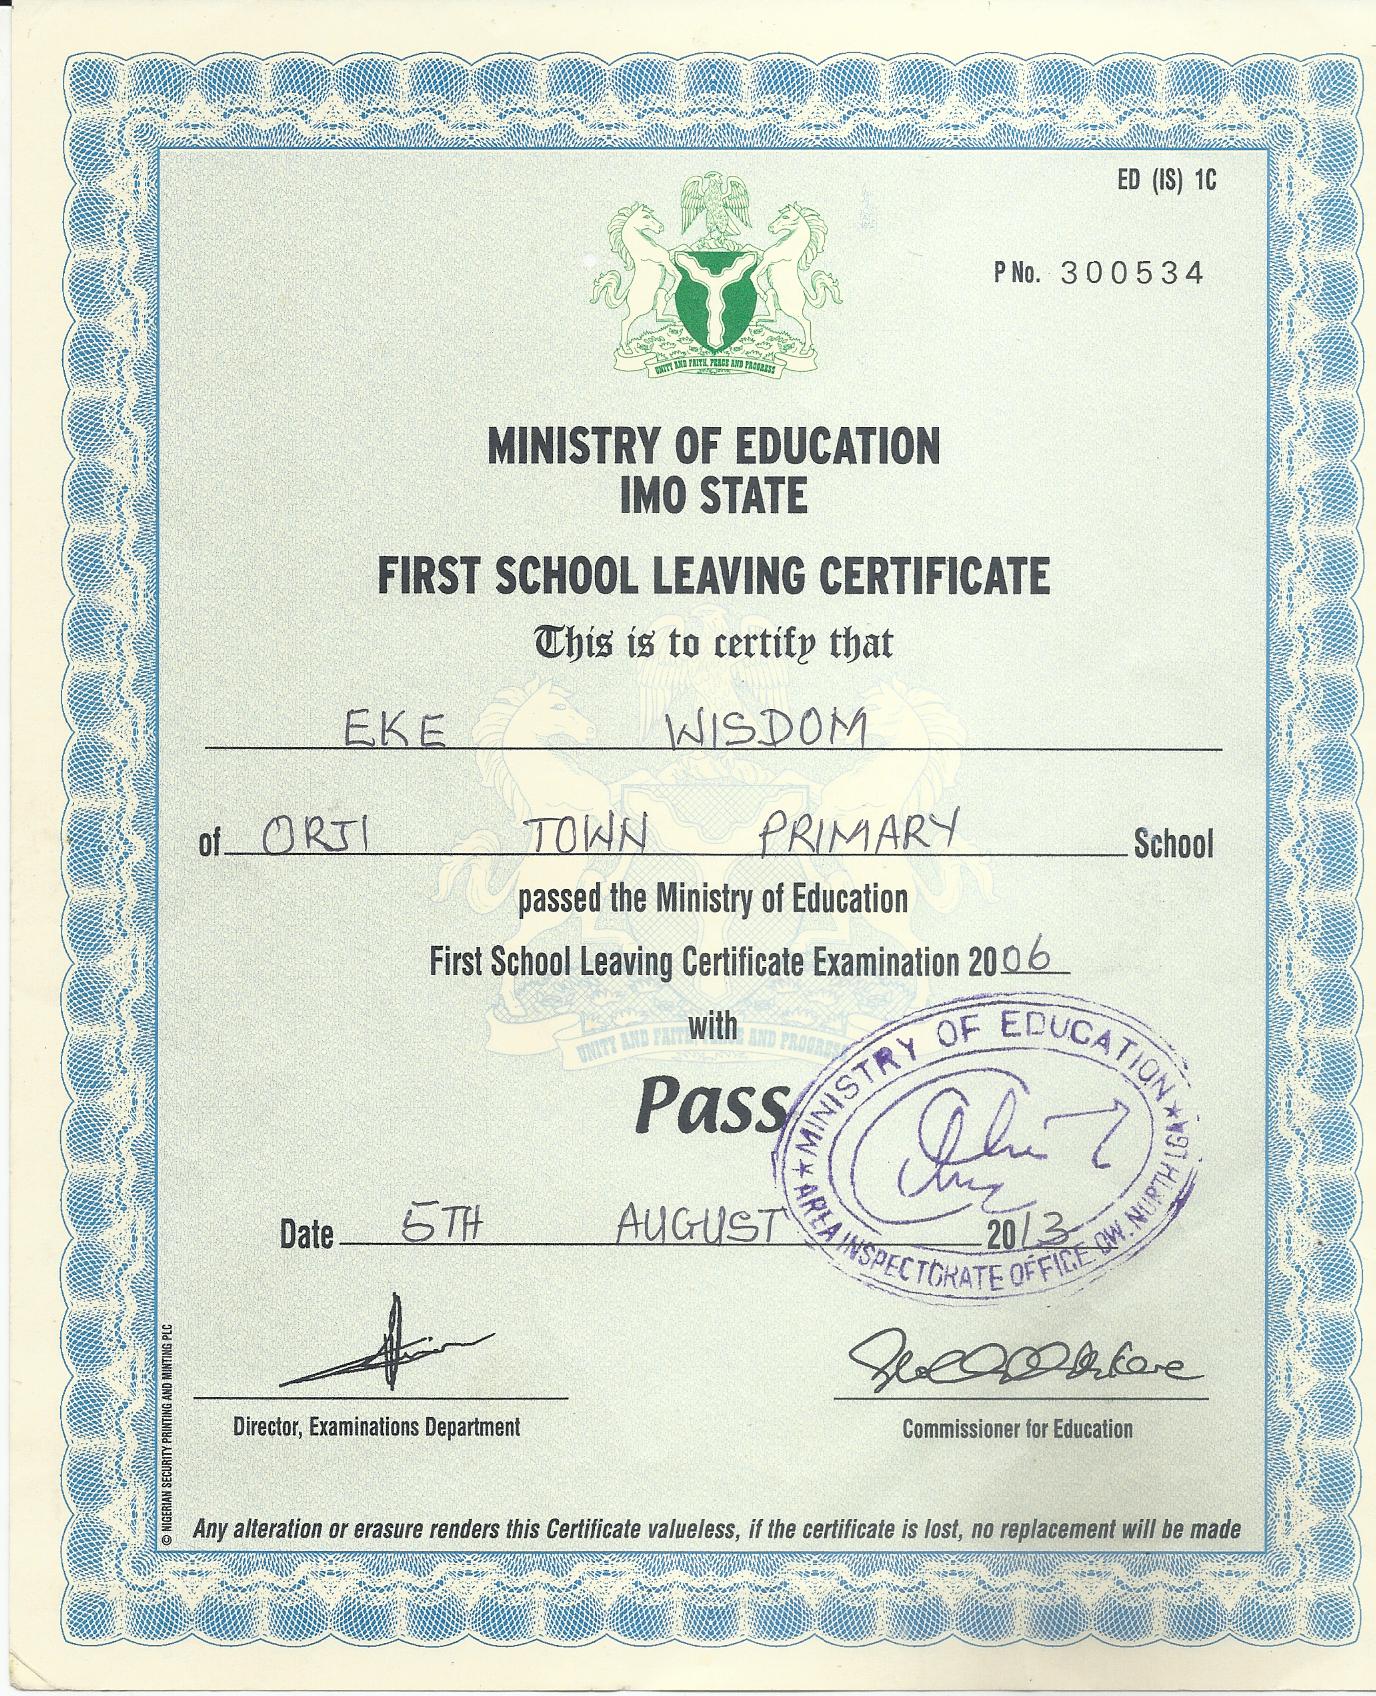 ED (IS) 1C
P No. 300534
UNITY AND FAITH, PEACE AND PROGRESS
MINISTRY OF EDUCATION
IMO STATE
FIRST SCHOOL LEAVING CERTIFICATE
This is to certify that
EKE WISDOM
of ORJI TOWN PRIMARY School
passed the Ministry of Education
First School Leaving Certificate Examination 2006
with
UNITY AND FAITH, PEACE AND PROGRESS
Pass
MINISTRY OF EDUCATION
AREA INSPECTORATE OFFICE OW. NORTH LGA
Date 5TH AUGUST 2013
Director, Examinations Department
Commissioner for Education
© NIGERIAN SECURITY PRINTING AND MINTING PLC
Any alteration or erasure renders this Certificate valueless, if the certificate is lost, no replacement will be made